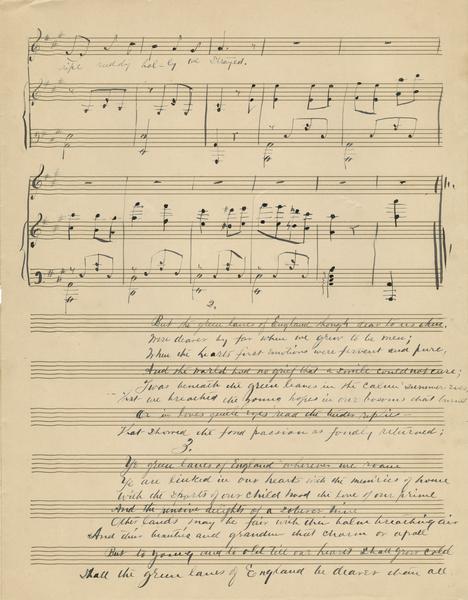 ripe ruddy hol-ly we strayed.
2.
But the green lanes of England though dear to us then
Were dearer by far when we grew to be men;
When the hearts first emotions were fervent and pure,
And the world had no grief that a smile could not cure;
Twas beneath the green leaves in the calm summer
That we breathed the young hopes in our bosoms that burned
Or in loves gentle eyes read the tender replies
That showed the fond passion as fondly returned;
3.
Ye green lanes of England wherever we roam
Ye are linked in our hearts with the memories of home
With the sports of our child hood the love of our prime
And the pensive delights of a soberer time
Other lands may be fair with their balm breathing air
And their beauties and grandeur that charm or apall
But to young and to old till our hearts shall grow cold
Shall the green lanes of England be dearer than all